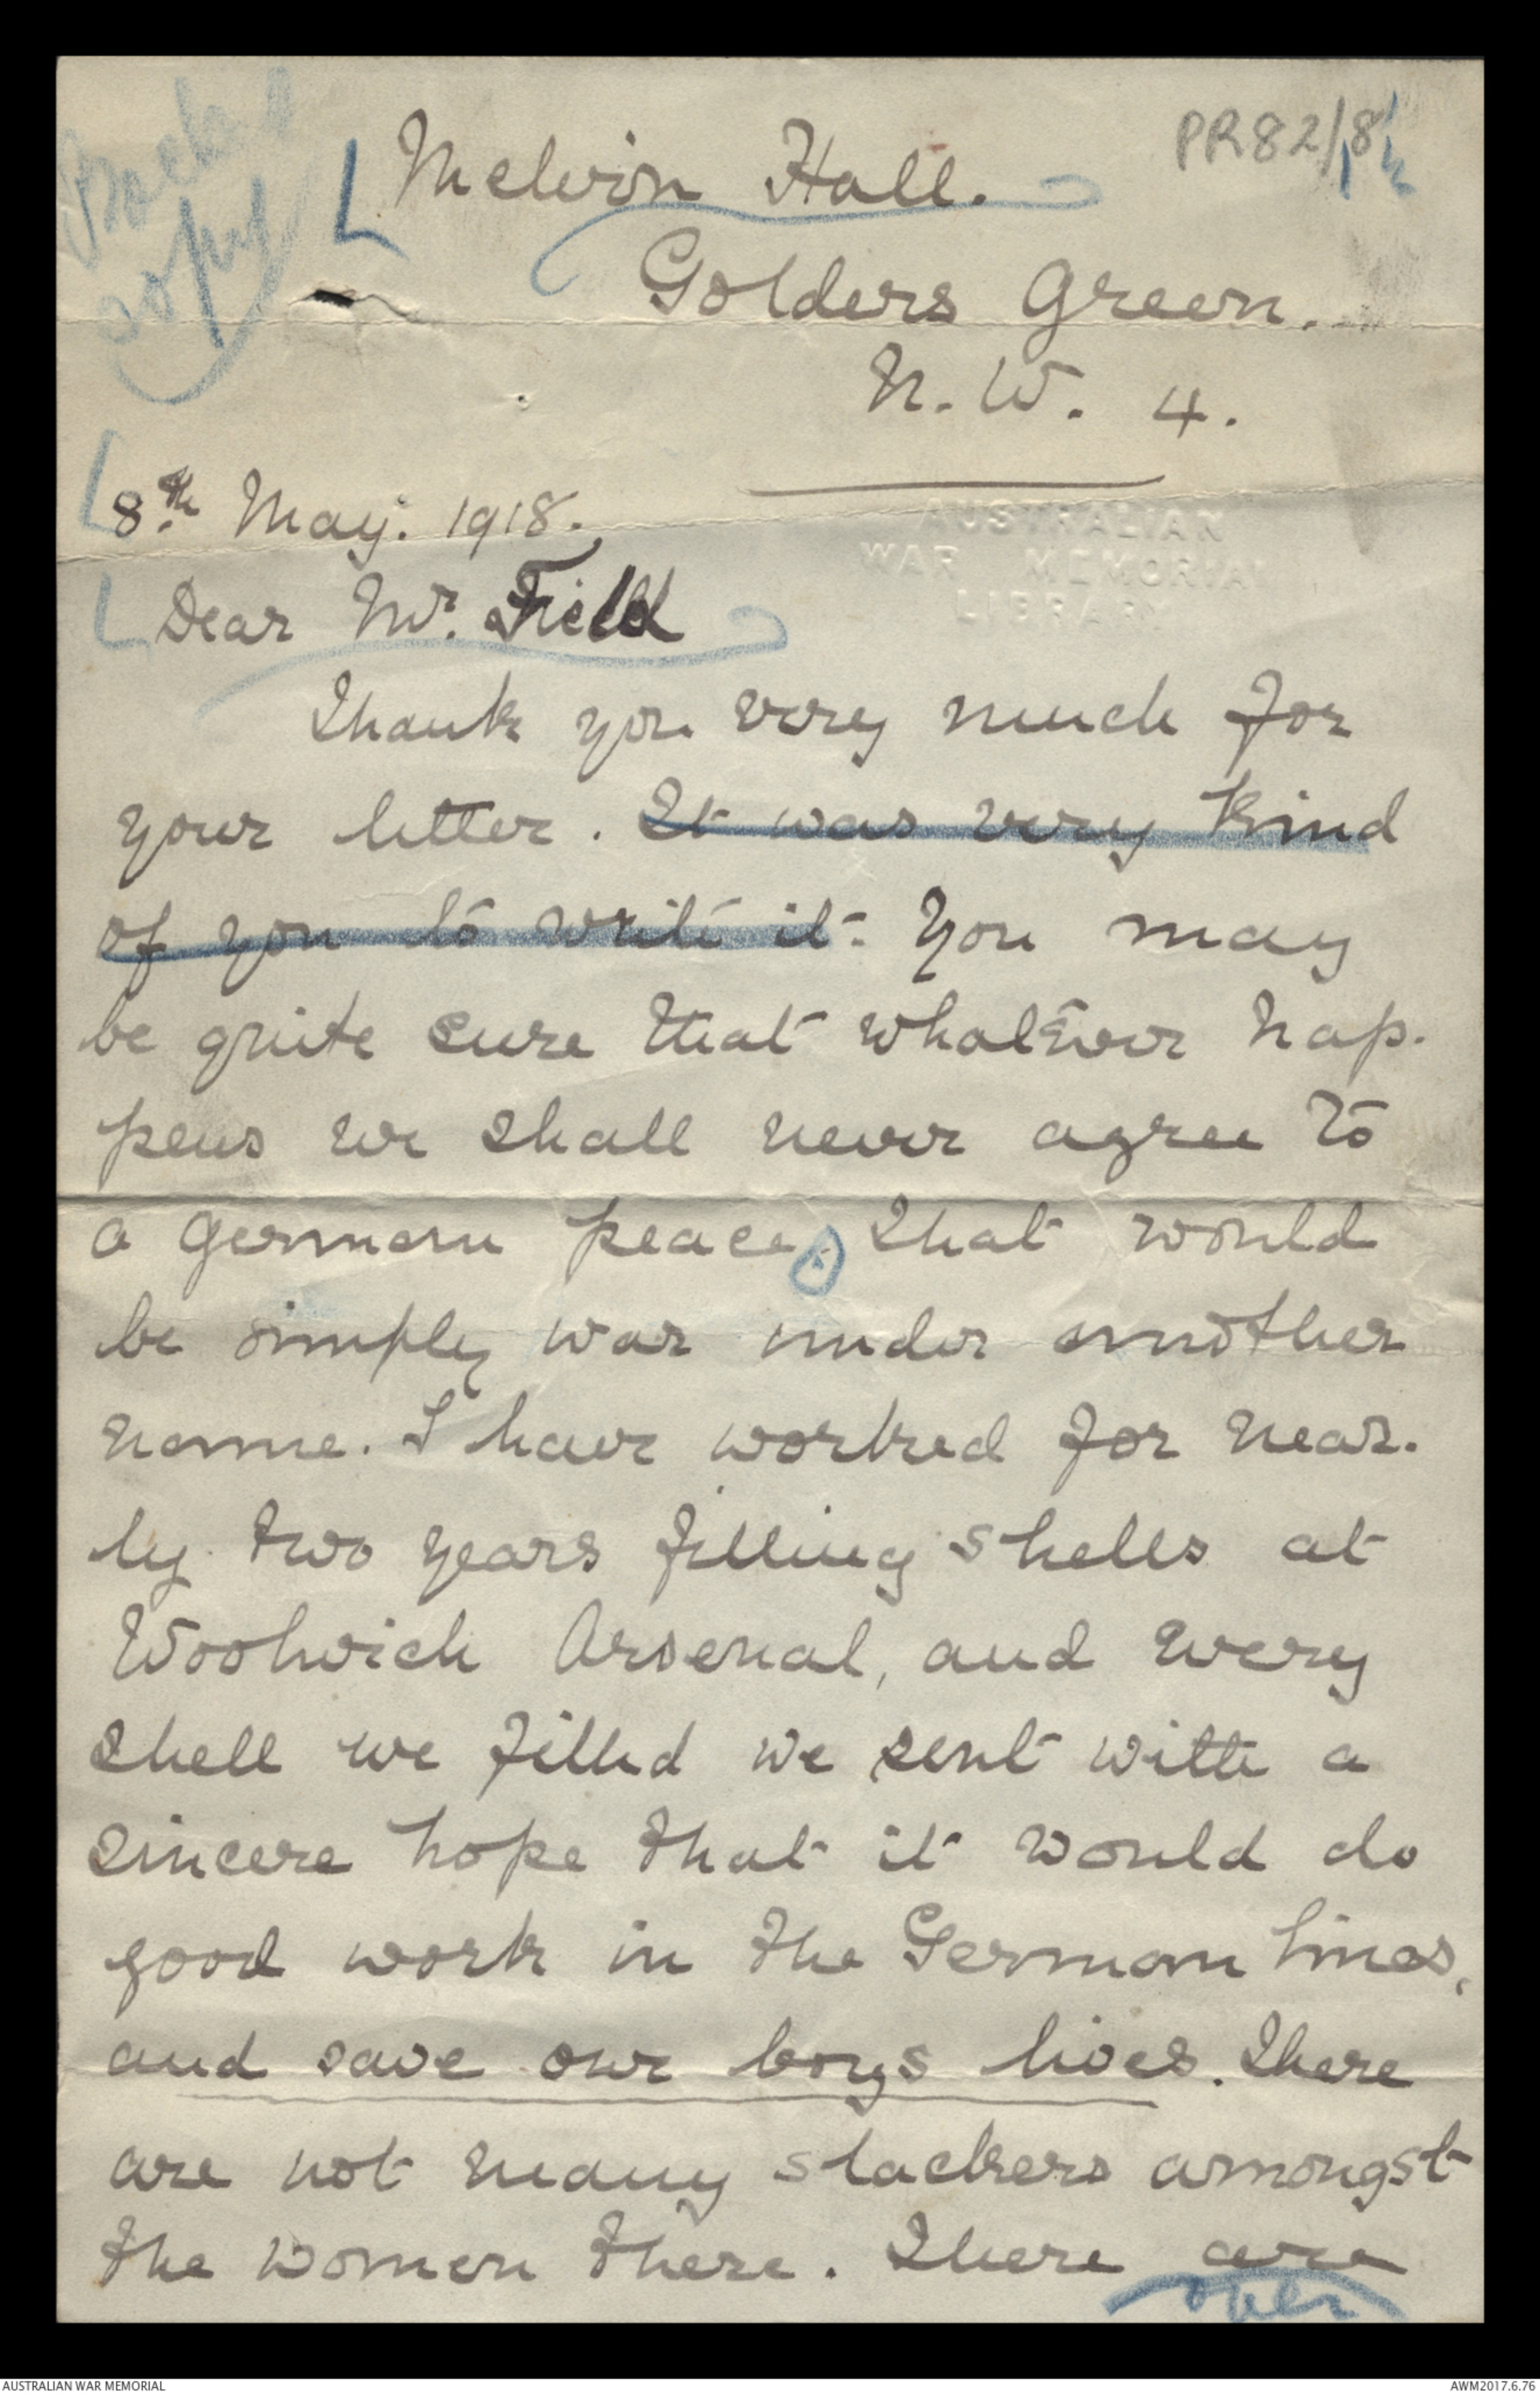 PR82/
copy
Melvin Hall.
Golders Green.
N. W. 4.
8.th May. 1918.
AUSTRALIAN
WAR MEMORIAL
LIBRARY
Dear Mr. Field
Thank you very much for
your letter. It was very kind
of you to write it. You may
be quite sure that whatever hap-
pens we shall never agree to
a German peace. That would
be simply war under another
name. I have worked for near-
ly two years filling shells at
Woolwich Arsenal, and every
shell we filled we sent with a
sincere hope that it would do
good work in the German lines,
and save our boys lives. There
are not many slackers amongst
the women there. There are
over
AUSTRALIAN WAR MEMORIAL
AWM2017.6.76